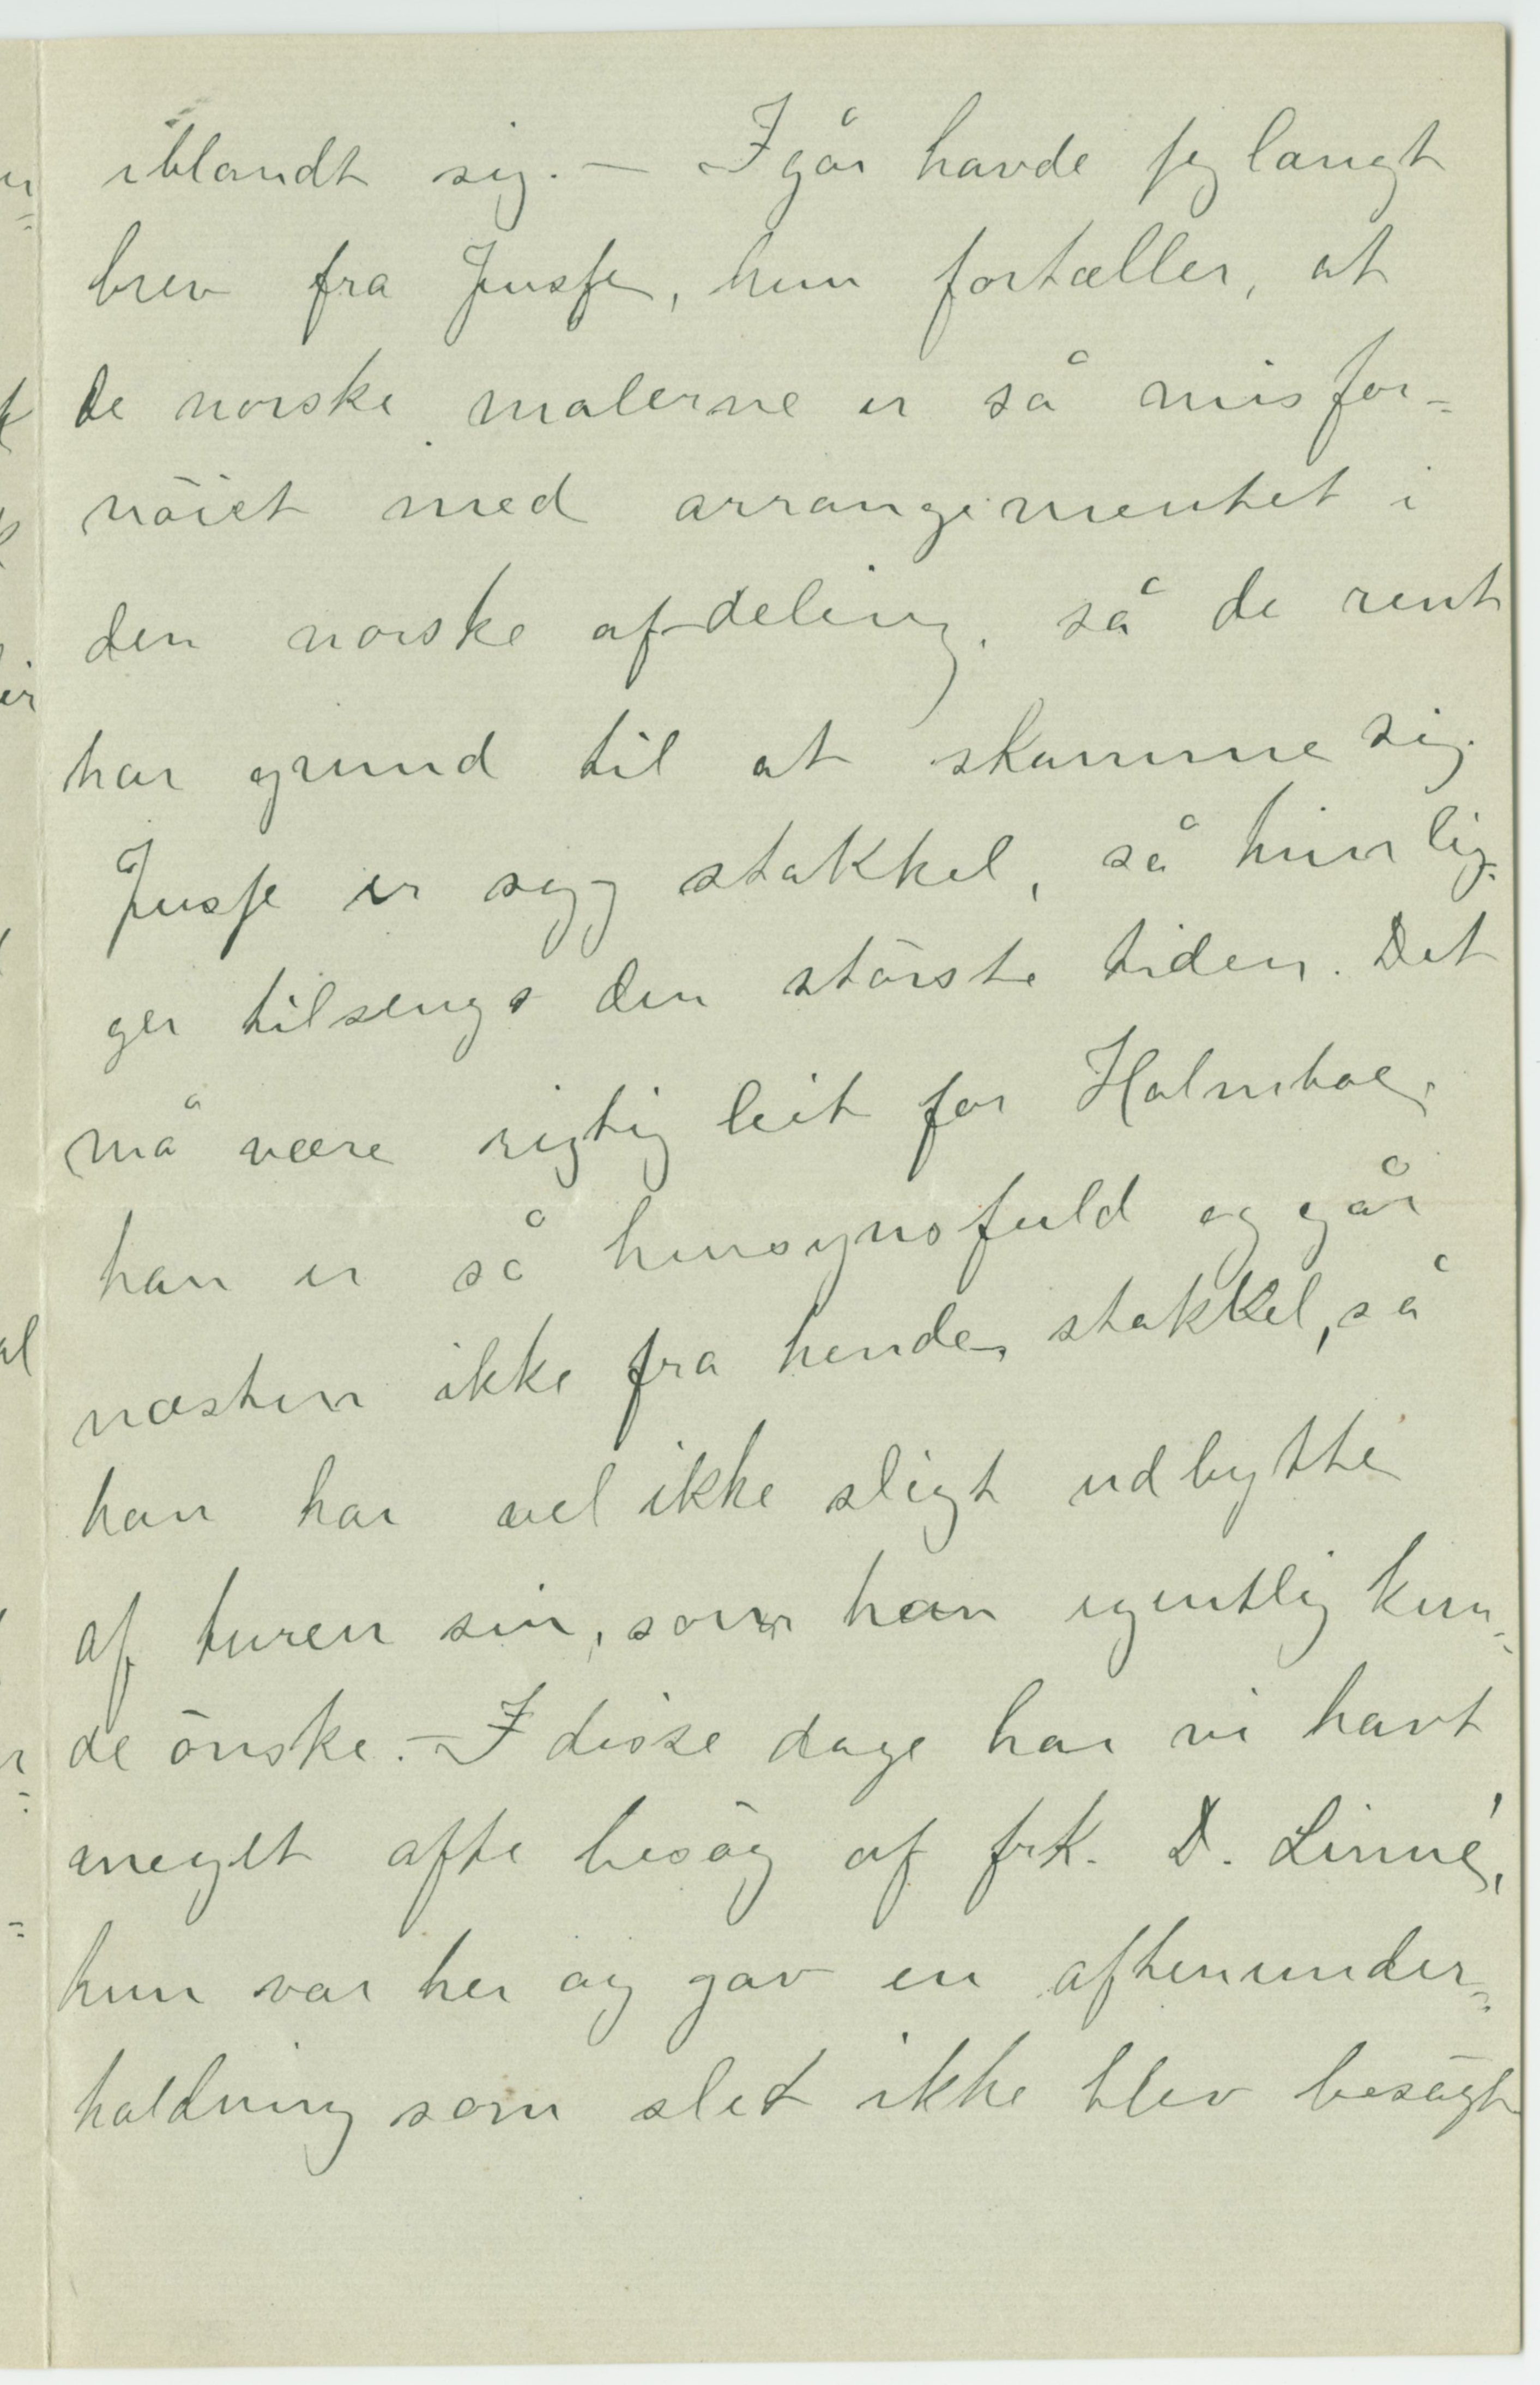 iblandt sig. – Igår havde jeg langt
brev fra Jusse, hun fortæller, at
de norske malerne er så misfor=
nöiet med arrangementet i
den norske afdeling, så de rent
har grund til at skamme sig.
Jusse er syg stakkel, så hun lig=
ger tilsengs den störste tiden. Det
må være rigtig leit for Holmboe,
han er så hensynsfuld og går
næsten ikke fra hende, stakkel, så
han har vel ikke sligt udbytte
af turen sin, som han egentlig kun=
de önske. – I disse dage har vi havt
meget ofte besög af frk. D. Linné,
hun var her og gav en aftenunder=
holdning som slet ikke blev besögt